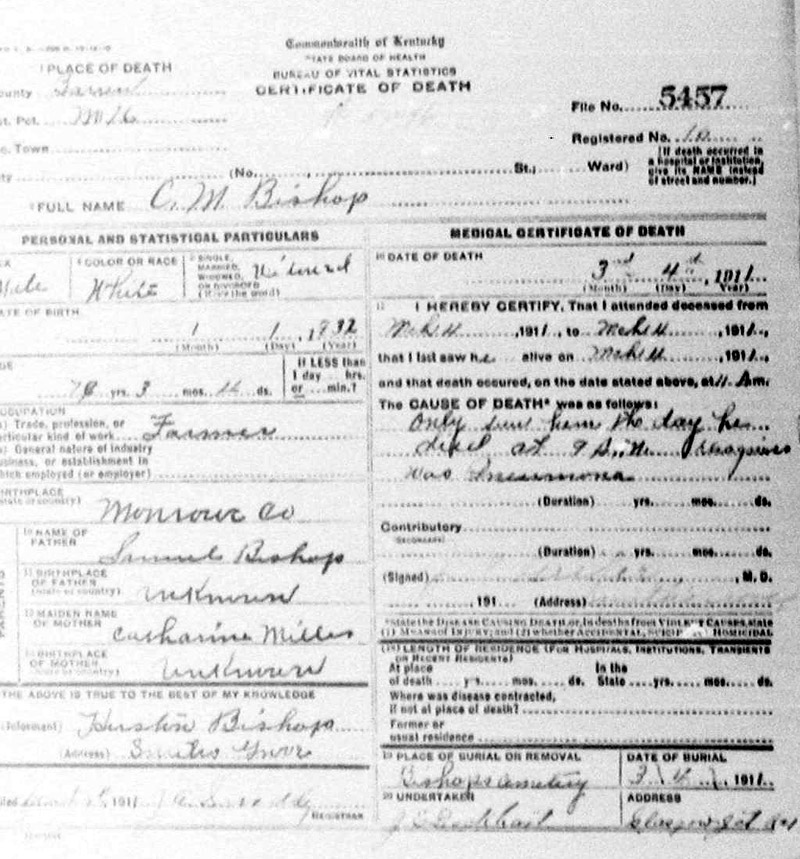 Commonwealth of Kentucky
STATE BOARD OF HEALTH
BUREAU OF VITAL STATISTICS
CERTIFICATE OF DEATH
PLACE OF DEATH
ounty
ot. Pct.
c. Town
ty (No. St.; Ward)
File No. 5457
Registered No. 10
[If death occurred in
a hospital or institution,
give its NAME instead
of street and number.]
FULL NAME C. M. Bishop
PERSONAL AND STATISTICAL PARTICULARS
EX
Male
COLOR OR RACE
White
SINGLE,
MARRIED,
WIDOWED,
OR DIVORCED
(Write the word)
ATE OF BIRTH
1 1, 1832
(Month) (Day) (Year)
GE
yrs. 3 mos. ds.
If LESS than
1 day hrs.
or min.?
OCCUPATION
(a) Trade, profession, or
particular kind of work Farmer
(b) General nature of industry
business, or establishment in
which employed (or employer)
BIRTHPLACE
(State or country)
Monroe Co
10 NAME OF
FATHER
Samuel Bishop
11 BIRTHPLACE
OF FATHER
(State or country)
unknown
12 MAIDEN NAME
OF MOTHER
Catharine Miller
BIRTHPLACE
OF MOTHER
(State or country)
unknown
PARENTS
THE ABOVE IS TRUE TO THE BEST OF MY KNOWLEDGE
(Informant) Bishop
(Address) Smiths Grove
1911
REGISTRAR
MEDICAL CERTIFICATE OF DEATH
DATE OF DEATH
3 4, 1911
(Month) (Day) (Year)
I HEREBY CERTIFY, That I attended deceased from
Mch 4, 1911, to Mch 4, 1911,
that I last saw h alive on Mch 4, 1911,
and that death occured, on the date stated above, at 11 Am.
The CAUSE OF DEATH* was as follows:
Only seen him the day he
died at 9
was Pneumonia
(Duration) yrs. mos. ds.
Contributory
(SECONDARY)
(Duration) yrs. mos. ds.
(Signed) , M. D.
, 191 (Address)
*State the DISEASE CAUSING DEATH, or, in deaths from VIOLENT CAUSES, state
(1) MEANS OF INJURY; and (2) whether ACCIDENTAL, SUICIDAL HOMICIDAL
LENGTH OF RESIDENCE (FOR HOSPITALS, INSTITUTIONS, TRANSIENTS
OR RECENT RESIDENTS)
At place In the
of death yrs. mos. ds. State yrs. mos. ds.
Where was disease contracted,
if not at place of death?
Former or
usual residence
19 PLACE OF BURIAL OR REMOVAL
Bishops Cemetery
DATE OF BURIAL
3 1911
20 UNDERTAKER
ADDRESS
Glasgow Jct Ky